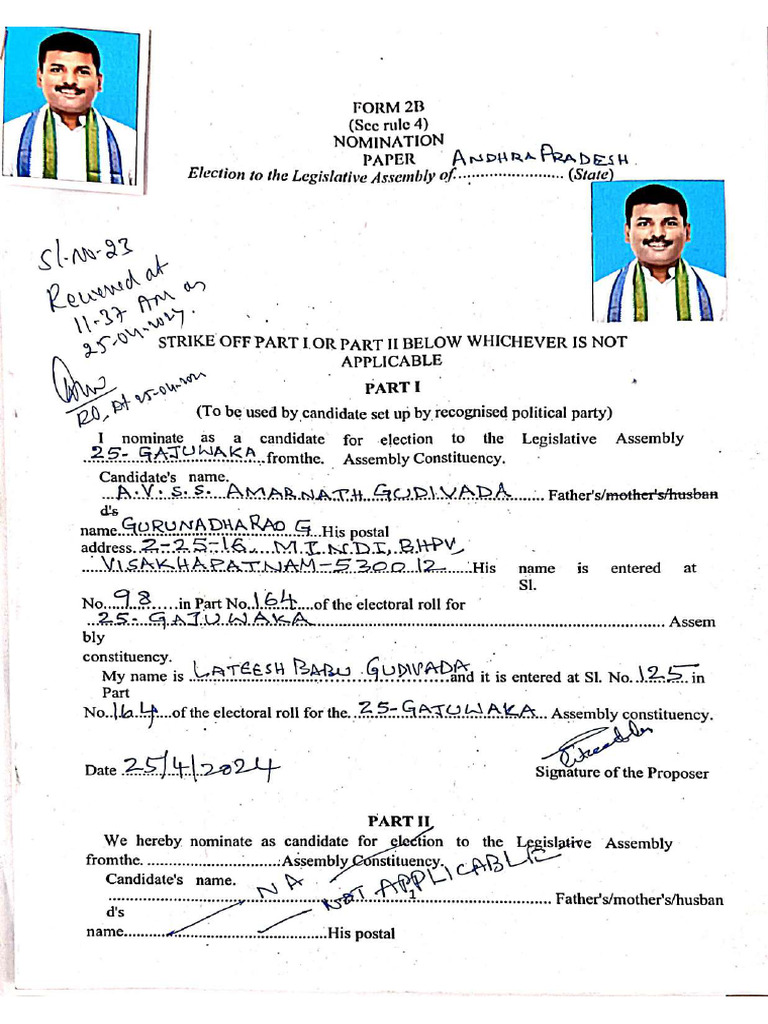 FORM 2B
(See rule 4)
NOMINATION
PAPER ANDHRA PRADESH
Election to the Legislative Assembly of........................ (State)
Sl.no-23
Received at
11-37 AM on
25-04-2024.
RO, At 25-04-2024
STRIKE OFF PART I OR PART II BELOW WHICHEVER IS NOT
APPLICABLE
PART I
(To be used by candidate set up by recognised political party)
I nominate as a candidate for election to the Legislative Assembly
25- GAJUWAKA fromthe. Assembly Constituency.
Candidate's name.
A.V.S.S. AMARNATH GUDIVADA Father's/mother's/husban
d's
name GURUNADHA RAO G His postal
address. 2-25-16, MINDI, BHPV,
VISAKHAPATNAM-530012 His name is entered at
Sl.
No. 98 in Part No. 164 of the electoral roll for
25-GAJUWAKA Assem
bly
constituency.
My name is LATEESH BABU GUDIVADA and it is entered at Sl. No. 125 in
Part
No. 164 of the electoral roll for the. 25-GAJUWAKA Assembly constituency.
Date 25/4/2024 Signature of the Proposer
PART II
We hereby nominate as candidate for election to the Legislative Assembly
fromthe. ........................Assembly Constituency.
Candidate's name.
NA NOT APPLICABLE
........................ Father's/mother's/husban
d's
name........................His postal